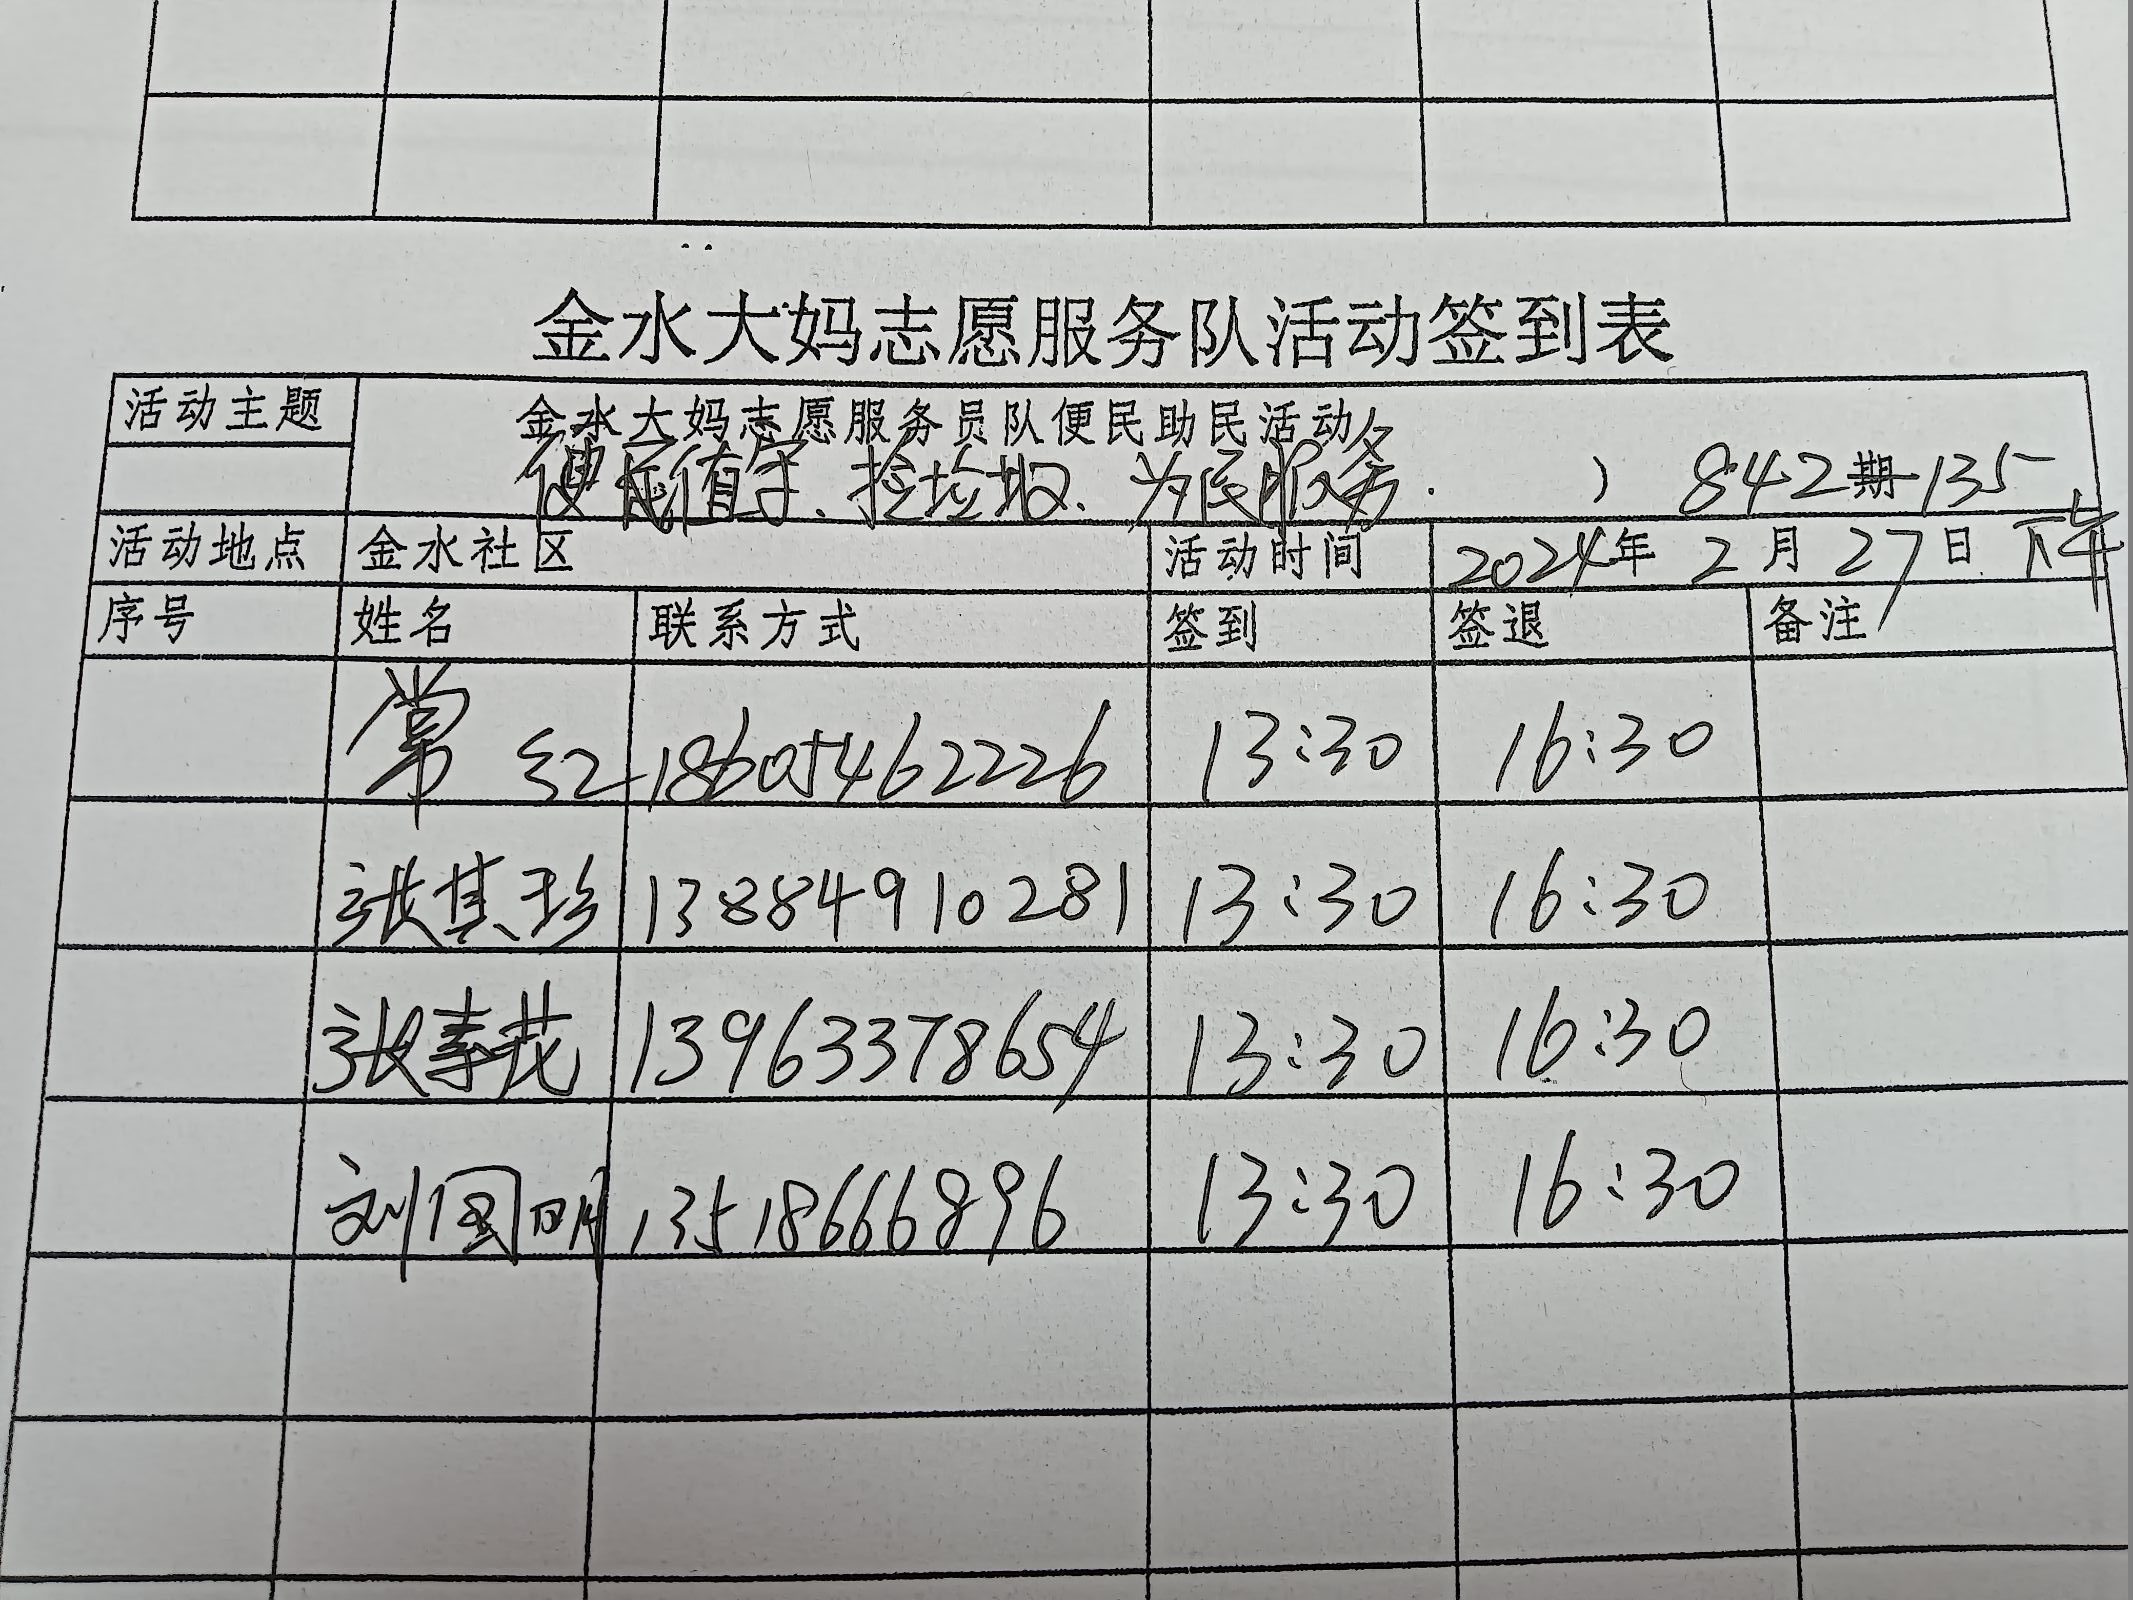 金水大妈志愿服务队活动签到表
活动主题 金水大妈志愿服务员队便民助民活动
便民值守、捡垃圾、为民服务. ) 842期-135
活动地点 金水社区 活动时间 2024年 2月 27日 下午
序号 姓名 联系方式 签到 签退 备注
常红 18605462226 13:30 16:30
张其珍 13884910281 13:30 16:30
张春花 13963378654 13:30 16:30
刘国明 13518666896 13:30 16:30